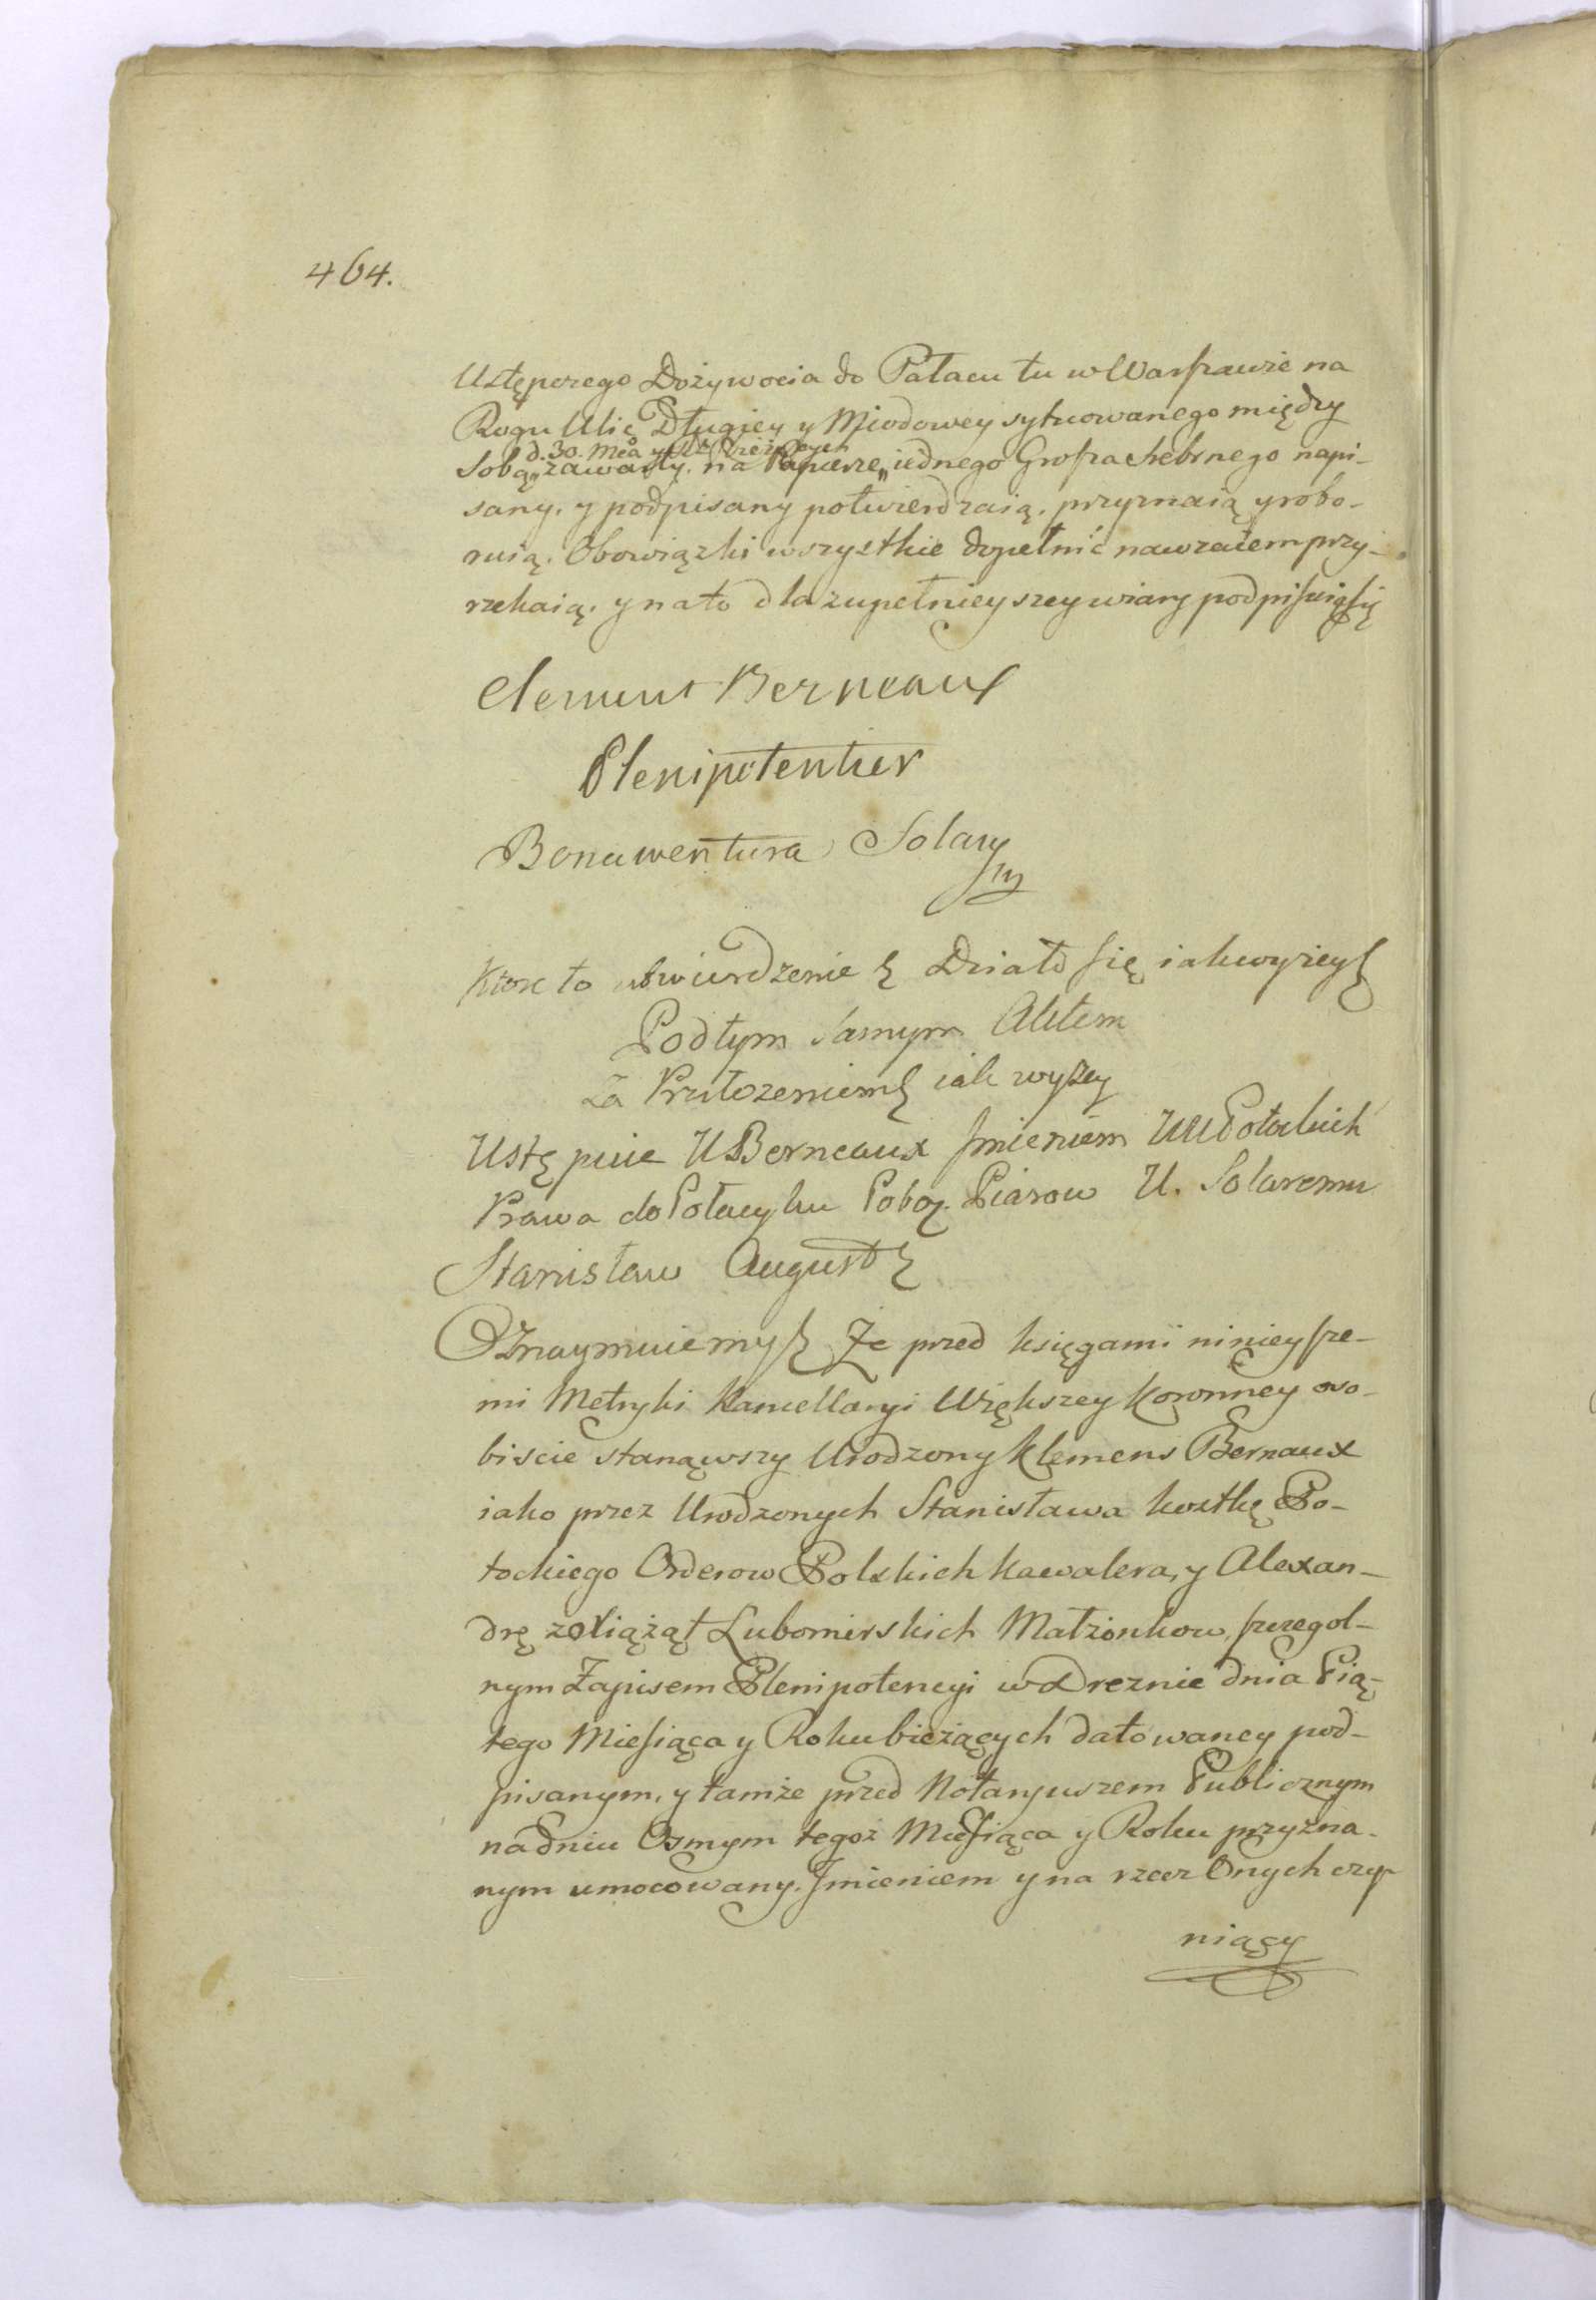 464.
Ustępczego Dożywocia do Pałacu tu w Warszawie na
Rogu Ulic Długiey y Miodowey sytuowanego między
d. 30. Mca y Rku bieżących
Sobą „ zawarty. na Papierze „ iednego Grosza srebrnego napi-
sany. y podpisany potwierdzaią. przyznaią y robo-
ruią. Obowiązki wszystkie dopełnić nawzaiem przy-
rzekaią. y na to dla zupełnieyszey wiary podpisuią się
Clement Berneaux
Plenipotentier
Bonawentura Solary
mp
Ktore to utwierdzenie Działo się iak wyżey
Pod tym samym Aktem
Za Przełożeniem iak wyżey
Ustępuie U Berneaux Jmieniem UU Potockich
Prawa do Pałacyku Poboż. Piarow U. Solaremu
Stanisław August
Oznaymuiemy Że przed księgami ninieysze-
mi Metryki Kancellaryi Większey Koronney oso-
biscie stanąwszy Urodzony Klemens Bernaux
iako przez Urodzonych Stanisława Kostkę Po-
tockiego Orderow Polskich Kawalera, y Alexan-
drę z Xiążąt Lubomirskich Małżonkow, szczegol-
nym Zapisem Plenipotencyi w Dreznie dnia Pią-
tego Miesiąca y Roku bieżących datowaney pod-
pisanym, y tamże przed Notaryuszem Publicznym
na dniu Osmym tegoż Miesiąca y Roku przyzna-
nym umocowany. Jmieniem y na rzecz Onych czy-
niący